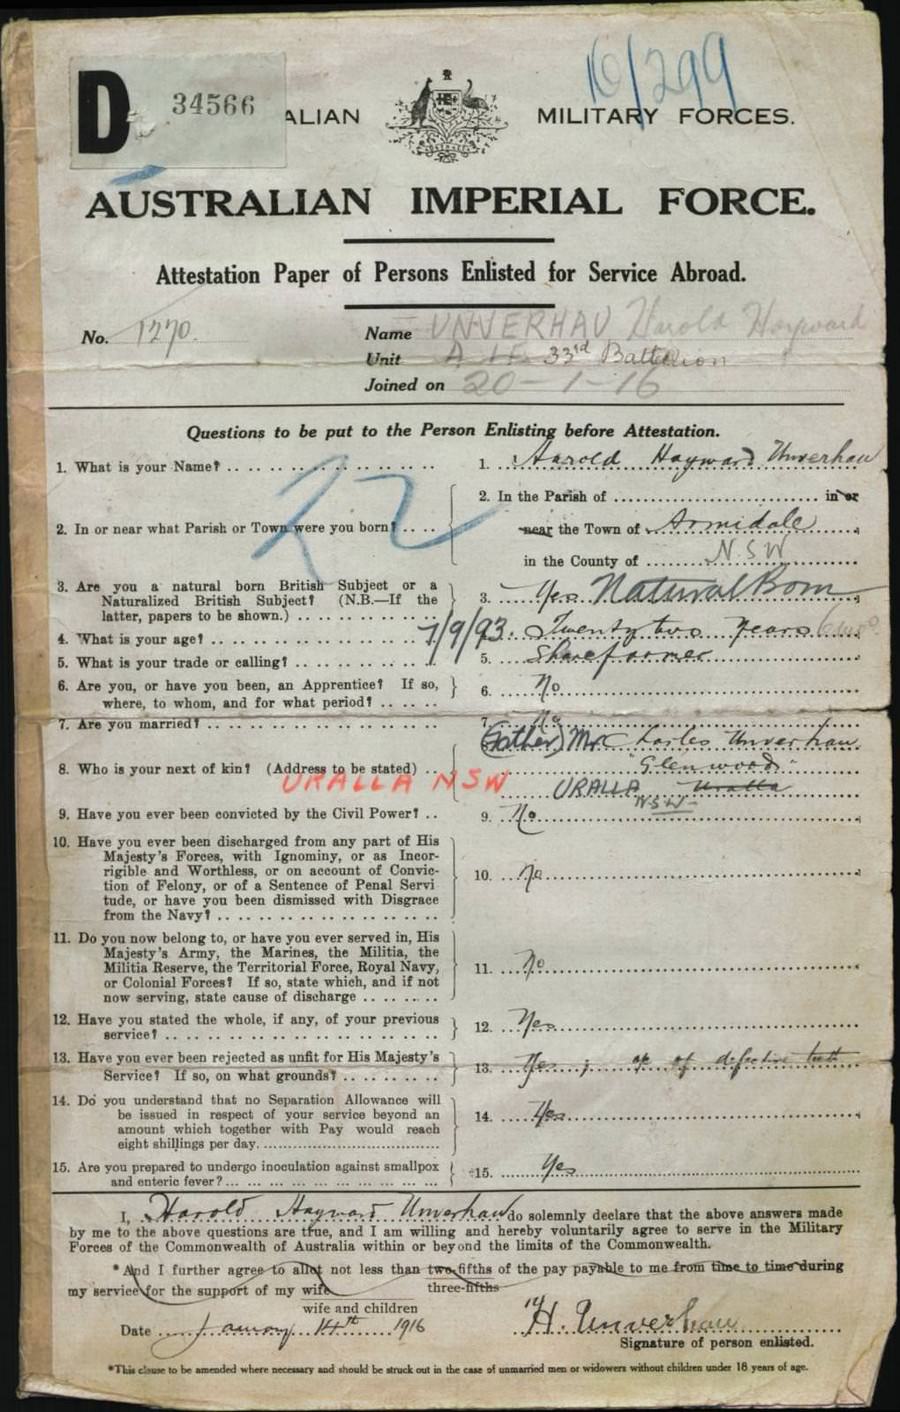 10/299
D 34566 ALIAN MILITARY FORCES.
AUSTRALIAN IMPERIAL FORCE.
Attestation Paper of Persons Enlisted for Service Abroad.
No. 1270. Name UNVERHAU Harold Hayward
Unit A.I.F. 33rd Battalion
Joined on 20-1-16
Questions to be put to the Person Enlisting before Attestation.
1. What is your Name? 1. Harold Hayward Unverhau
22
2. In or near what Parish or Town were you born? 2. In the Parish of in or
near the Town of Armidale
in the County of NSW
3. Are you a natural born British Subject or a
Naturalized British Subject? (N.B.—If the
latter, papers to be shown.) 3. Yes Natural Born
4. What is your age? 7/9/93. Twenty two years
5. What is your trade or calling? 5. Sharefarmer
6. Are you, or have you been, an Apprentice? If so,
where, to whom, and for what period? 6. No
7. Are you married? 7. No
8. Who is your next of kin? (Address to be stated) (Father) Mr Charles Unverhau
"Glenwood"
URALLA NSW URALLA Uralla
NSW
9. Have you ever been convicted by the Civil Power? 9. No
10. Have you ever been discharged from any part of His
Majesty's Forces, with Ignominy, or as Incor-
rigible and Worthless, or on account of Convic-
tion of Felony, or of a Sentence of Penal Servi
tude, or have you been dismissed with Disgrace
from the Navy? 10. No
11. Do you now belong to, or have you ever served in, His
Majesty's Army, the Marines, the Militia, the
Militia Reserve, the Territorial Force, Royal Navy,
or Colonial Forces? If so, state which, and if not
now serving, state cause of discharge 11. No
12. Have you stated the whole, if any, of your previous
service? 12. Yes
13. Have you ever been rejected as unfit for His Majesty's
Service? If so, on what grounds? 13. Yes ; of defective teeth
14. Do you understand that no Separation Allowance will
be issued in respect of your service beyond an
amount which together with Pay would reach
eight shillings per day. 14. Yes
15. Are you prepared to undergo inoculation against smallpox
and enteric fever? 15. Yes
I, Harold Hayward Unverhau do solemnly declare that the above answers made
by me to the above questions are true, and I am willing and hereby voluntarily agree to serve in the Military
Forces of the Commonwealth of Australia within or beyond the limits of the Commonwealth.
*And I further agree to allot not less than two-fifths of the pay payable to me from time to time during
three-fifths
my service for the support of my wife
wife and children
Date January 14th 1916 H. Unverhau
Signature of person enlisted.
*This clause to be amended where necessary and should be struck out in the case of unmarried men or widowers without children under 18 years of age.